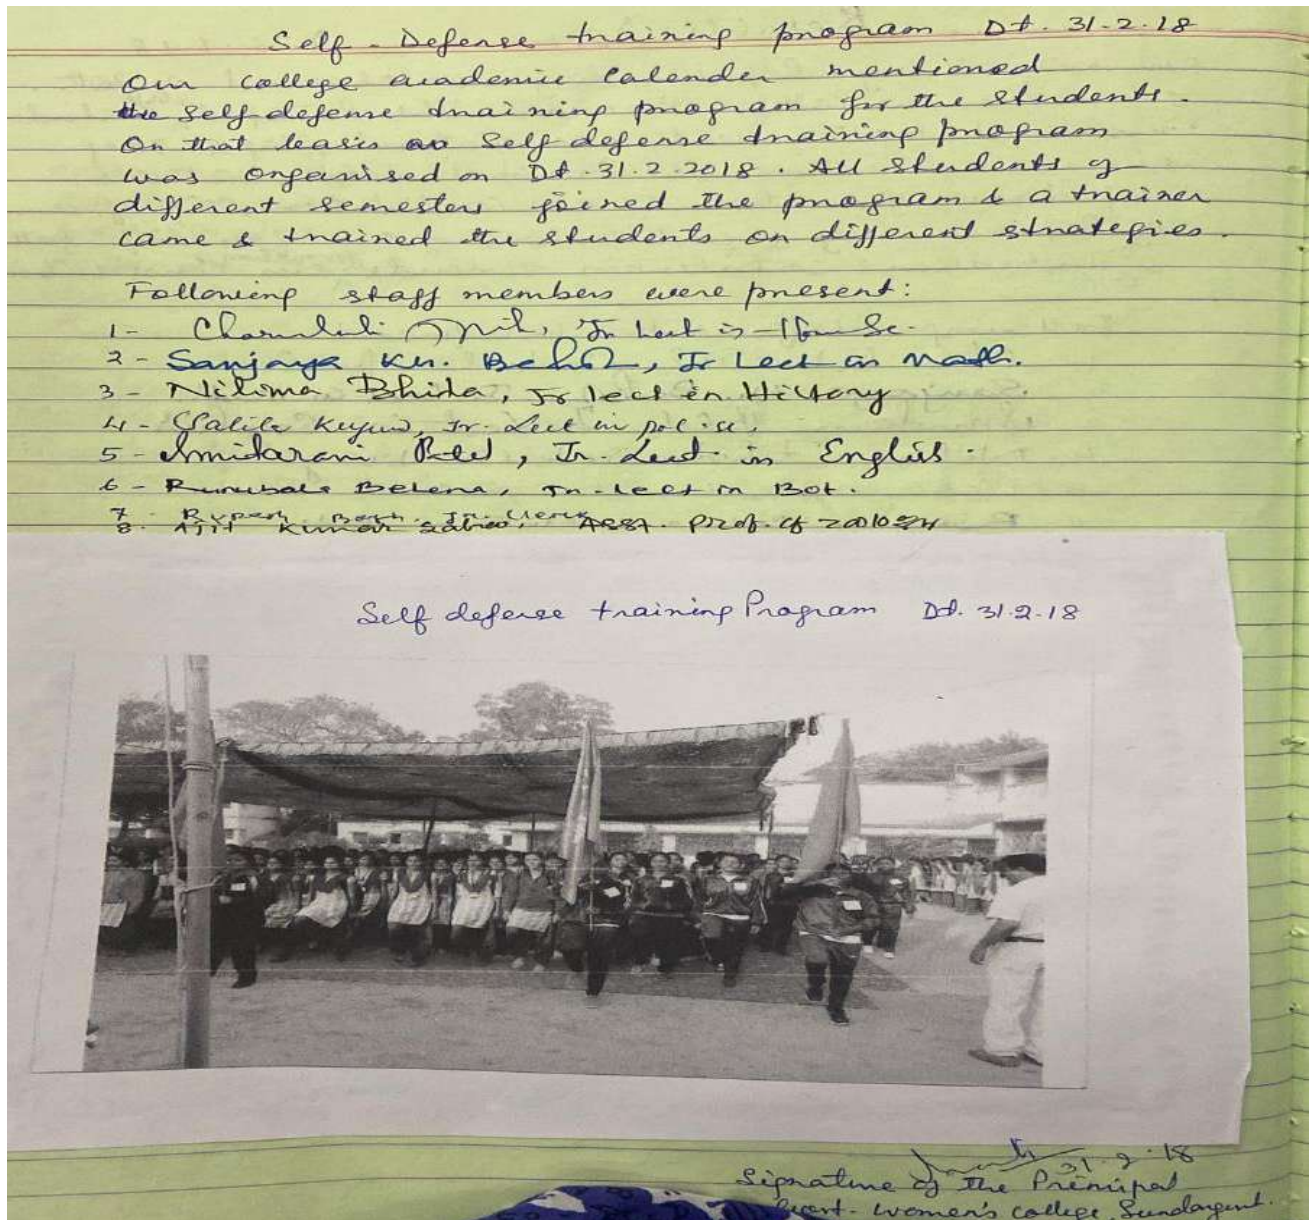 Self - Defense training program Dt. 31-2-18
Our college academic Calender mentioned
the Self defense training program for the students.
On that basis Self defense training program
was organised on Dt. 31.2.2018. All students of
different semesters joined the program & a trainer
came & trained the students on different strategies.
Following staff members were present:
1- Jr Lect in
2 - Sanjaya Ku. Jr Lect in Math.
3 - Nilima Bhida, Jr lect in History
4 - Lalita Kujur, Jr. Lect in pol. sc.
5 - Smitarani Jr. Lect in English.
6 - Jr. Lect in Bot.
7 - Jr. Clerk
8. Ajit Kumar Asst. Prof. of Zoology
Self defense training Program Dt. 31.2.18
31.2.18
Signature of the Principal
Govt. Women's College, Sundargarh.